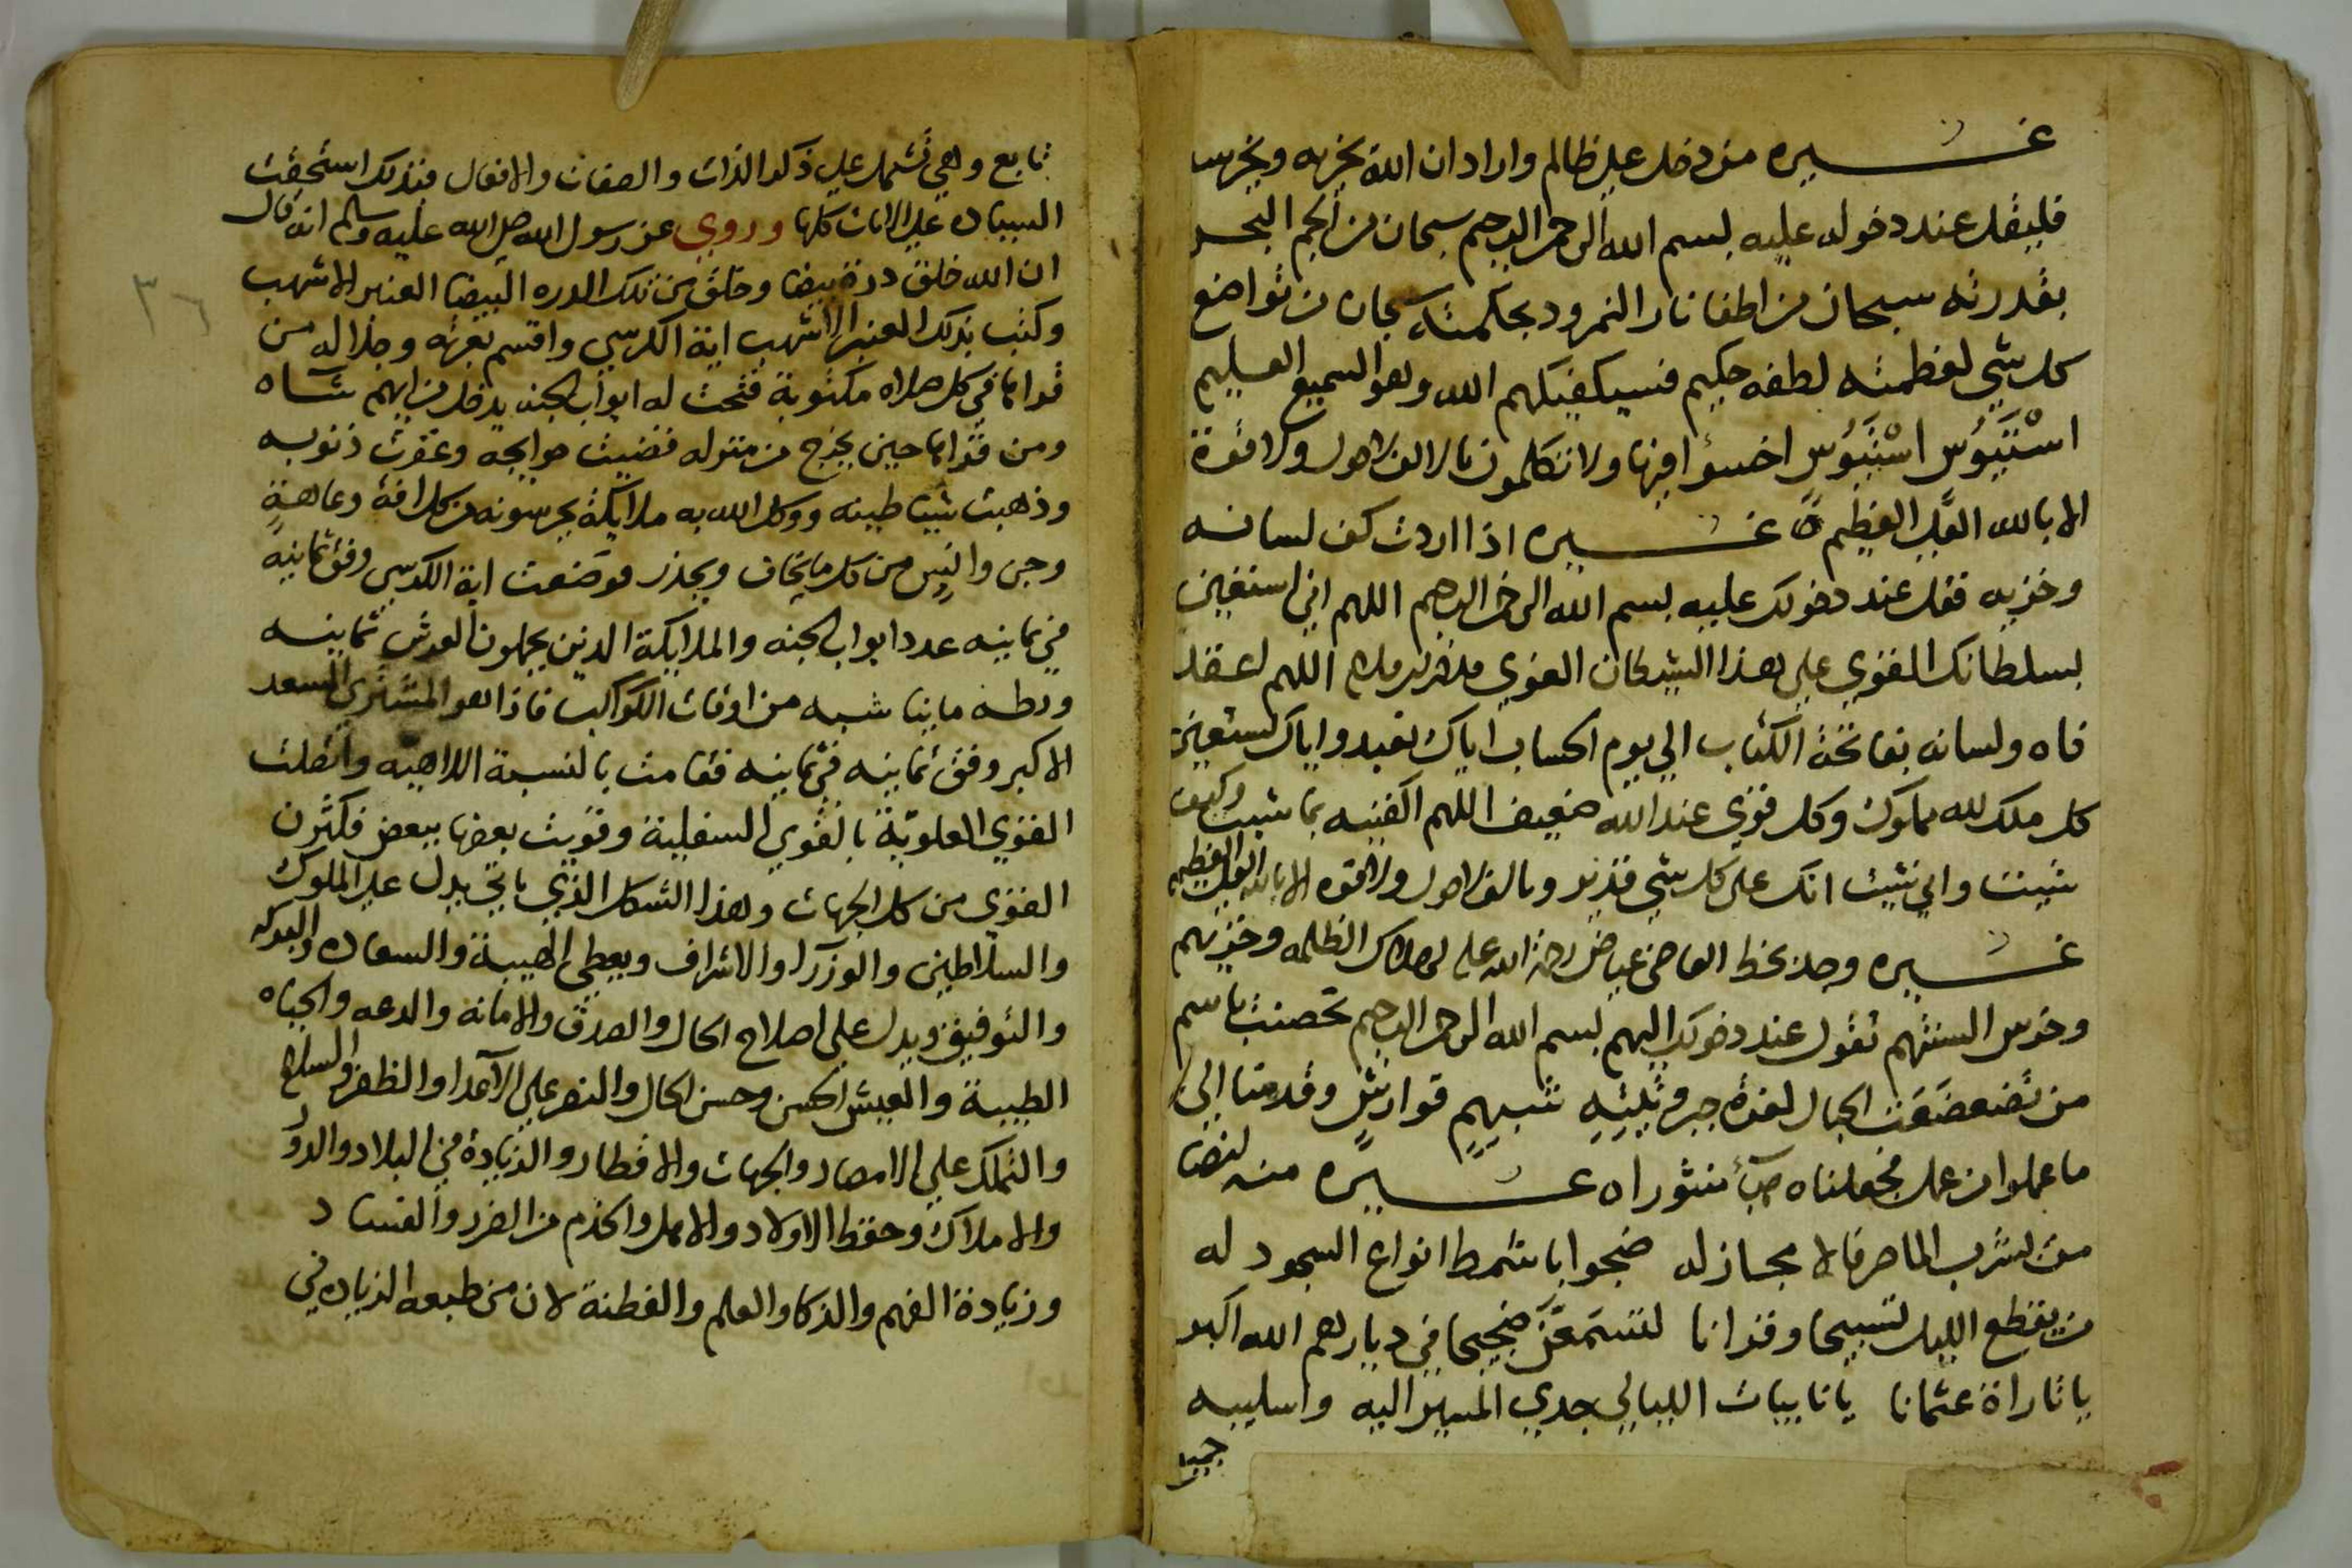 غيره من دخل علي ظالم واراد ان الله يخزيه ويخرسه
فليقل عند دخوله عليه بسم الله الرحمن الرحيم سبحان من الجم البحر
بقدرته سبحان من اطفا نار النمرود بحكمته سبحان من تواضع
كل شي لعظمته لطفه حكيم فسيكفيكهم الله وهو السميع العليم
اخسوا فيها ولا تكلمون بالف لا حول ولا قوة
الا بالله العلي العظيم غيره اذا اردت كف لسانه
وخزيه فقل عند دخولك عليه بسم الله الرحمن الرحيم اللهم اني استعين
بسلطانك القوي علي هذا الشيطان الغوي اللهم اعقد
فاه ولسانه بفاتحة الكتاب الي يوم الحساب اياك نعبد واياك نستعين
كل ملك لله مملوك وكل قوي عند الله ضعيف اللهم اكفنيه بما شيت وكيف
شيت واني شيت انك علي كل شي قدير وبالف لا حول ولا قوة الا بالله العلي العظيم
غيره وجد بخط القاضي عياض رحمة الله عليه لهلاك الظلمه وخزيهم
وخرس السنتهم تقول عند دخولك اليهم بسم الله الرحمن الرحيم تحصنت باسم
من تضعضعت الجبال لعزة وقدمنا الي
ما عملوا من عمل فجعلناه هبآ منثورا غيره منه
من الماضر فالا مجاز له ضجوا باشمط انواع السجود له
من يقطع الليل تسبيحا وقرانا لتسمعن ضجيجا في ديارهم الله اكبر
يا ثاراة عثمانا يا نايبات الليالي جدي المسير اليه واسلبيه
تابع وهي تشتمل علي ذكر الذات والصفات والافعال فبذلك استحقت
السياده علي الايات كلها وروي عن رسول الله صلي الله عليه وسلم انه قال
ان الله خلق درة بيضا وخلق من تلك الدره البيضا العنبر الاشهب
وكتب بذلك العنبر الاشهب اية الكرسي واقسم بعزته وجلاله من
قراها في كل صلاه مكتوبة فتحت له ابواب الجنه يدخل من ايهم شآه
ومن قراها حين يخرج من منزله قضيت حوايجه وغفرت ذنوبه
وذهبت ووكل الله به ملايكة يحرسونه من كل افة وعاهة
وجن وانس من كل ما يخاف ويحذر فوضعت اية الكرسي وفق ثمانية
في ثمانيه عدد ابواب الجنه والملايكة الذين يحملون العرش ثمانيه
ما يناسبه من اوفاق الكواكب فاذا هو المشتري السعد
الاكبر وفق ثمانيه في ثمانيه فقامت بالنسبة الالاهيه واتصلت
القوي العلوية بالقوي السفلية وقويت بعضها ببعض فكثرن
القوي من كل الجهات وهذا الشكل الذي ياتي يدل علي الملوك
والسلاطين والوزرآ والاشراف ويعطي الهيبة والسعاده والبركه
والتوفيق ويدل علي اصلاح الحال والصدق والامانه والدعه والحياه
الطيبة والعيش الحسن وحسن الحال والنصر علي الآعدا والظفر والسلاح
والتملك علي الامصار والجهات والاقطار والزيادة في البلاد والدور
والاملاك وحفظ الاولاد والاهل والخدم من الضرر والفساد
وزيادة الفهم والذكا والعلم والفطنة لان من طبعه الزياده في
٣٦